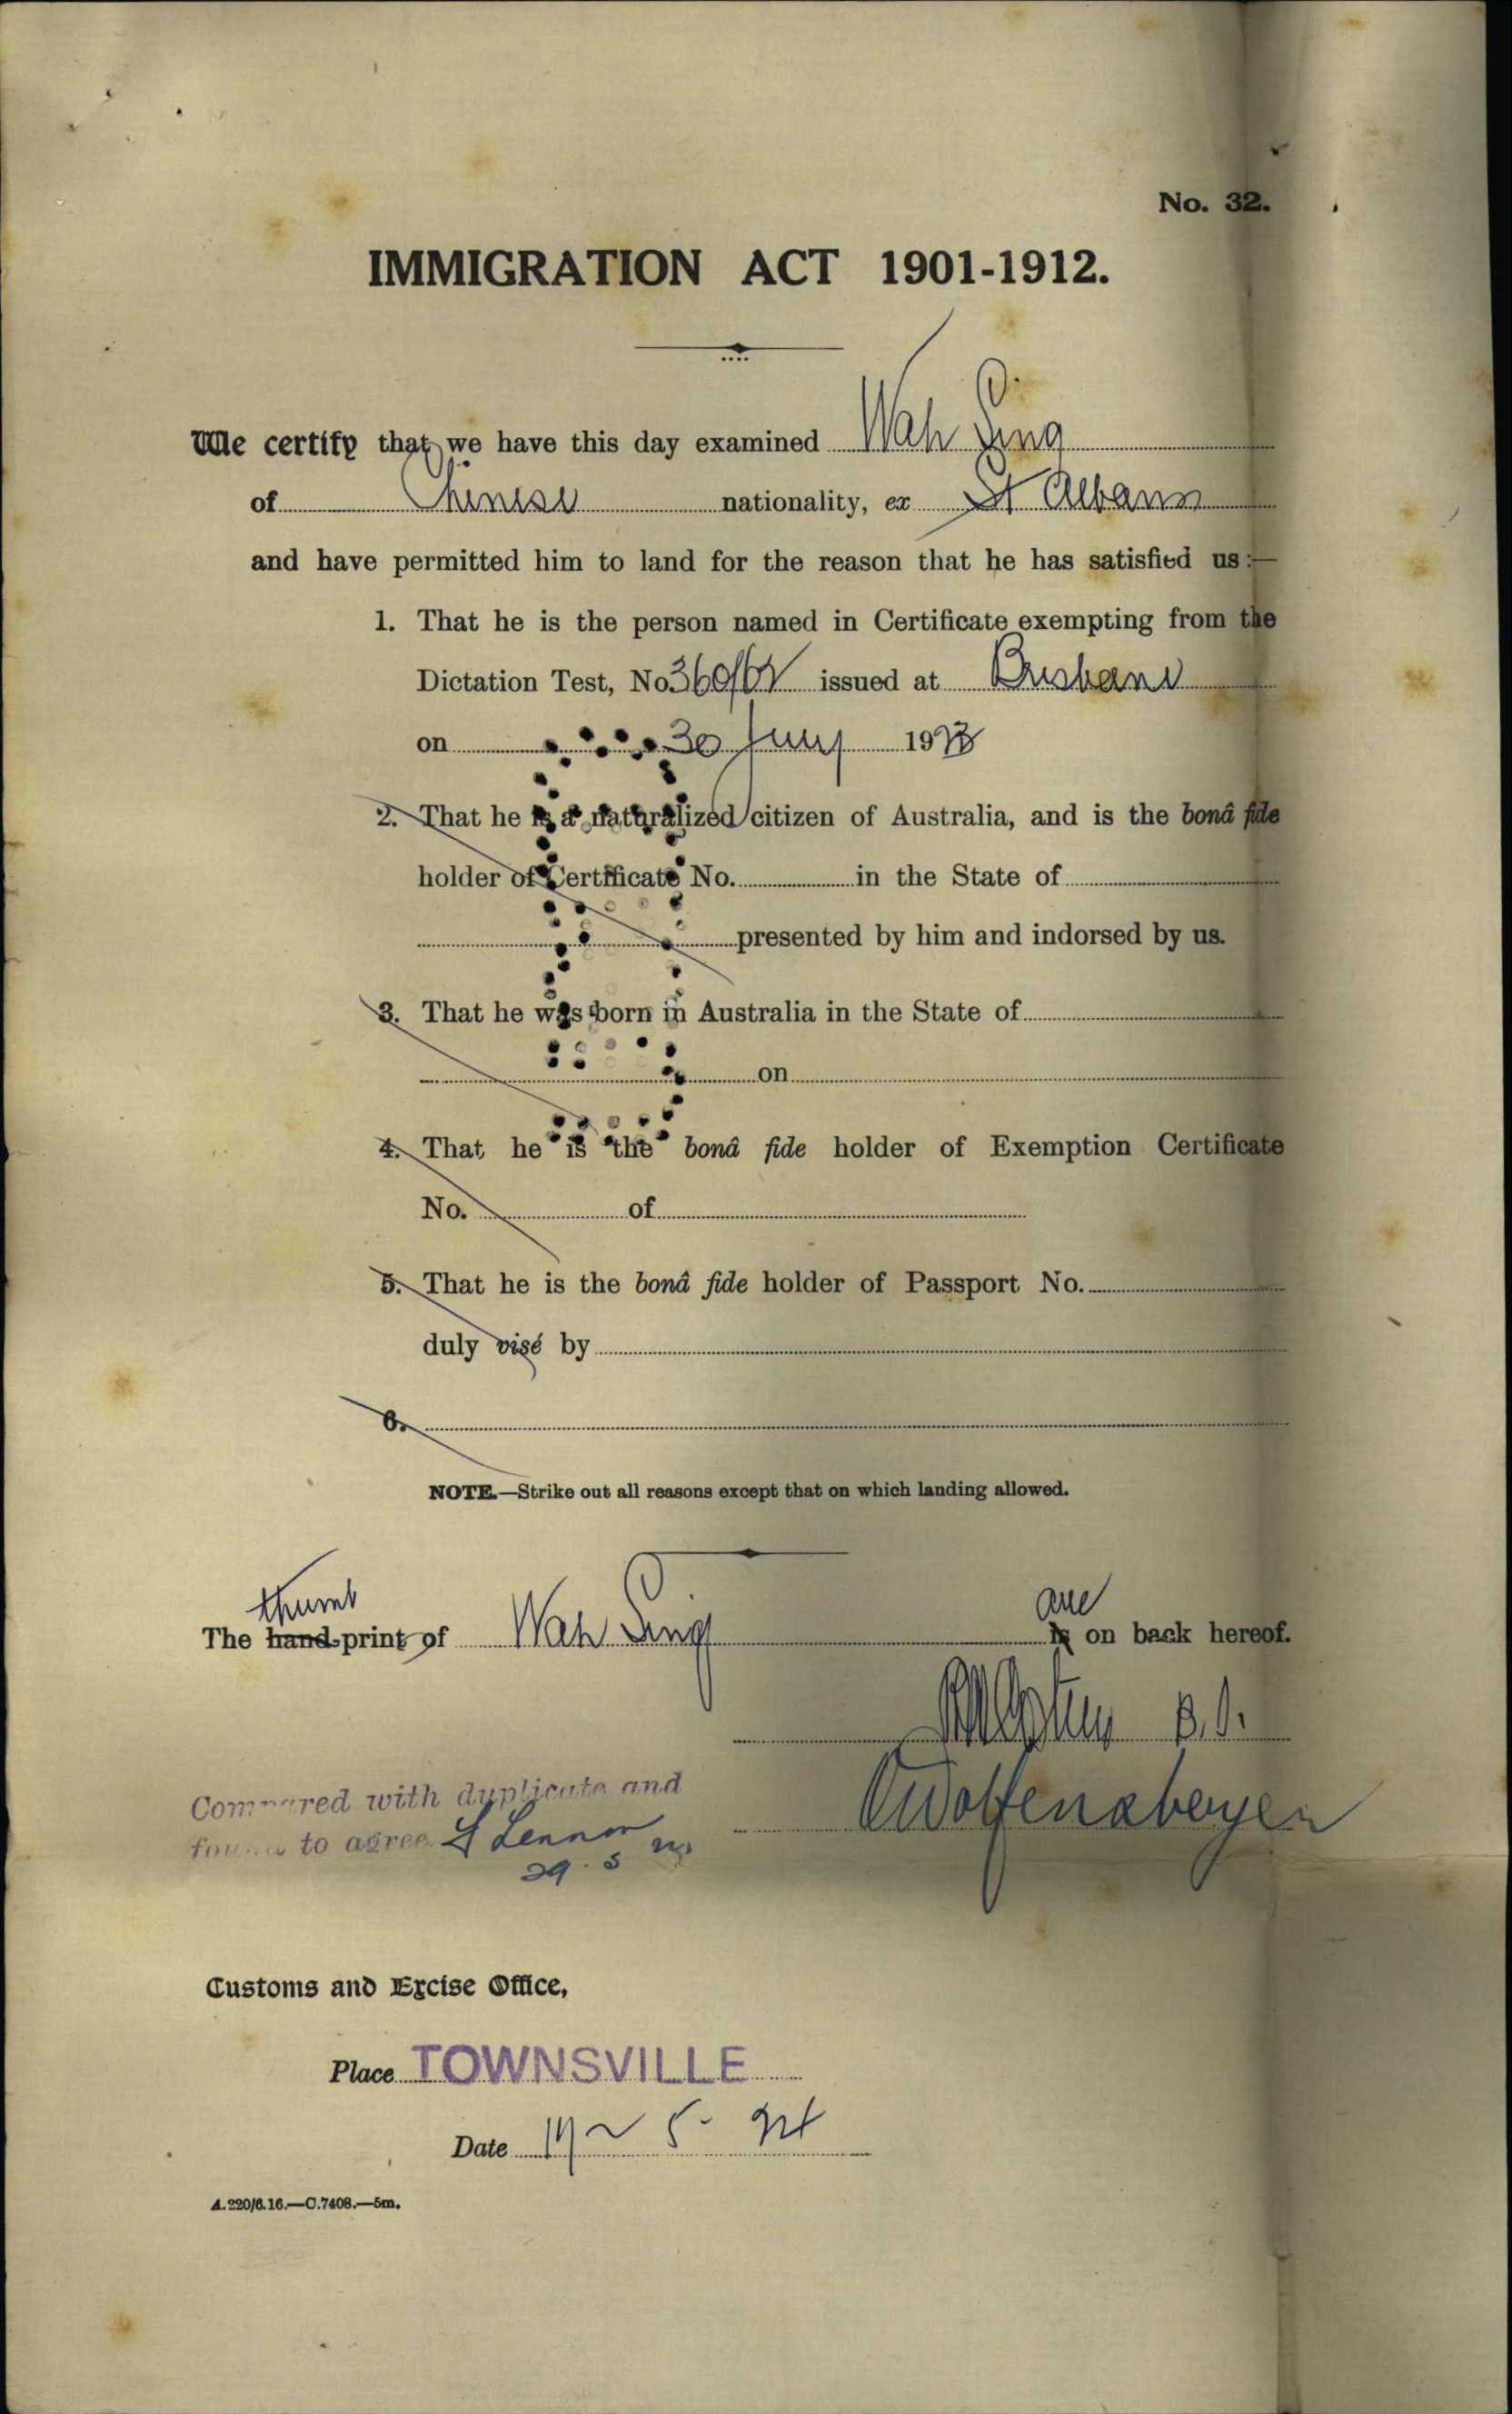 No. 32.
IMMIGRATION ACT 1901-1912.
We certify that we have this day examined Wah Sing
of Chinese nationality, ex St Albans
and have permitted him to land for the reason that he has satisfied us:—
1. That he is the person named in Certificate exempting from the
Dictation Test, No. 360/62 issued at Brisbane
on 30 19
2. That he is a naturalized citizen of Australia, and is the bonâ fide
holder of Certificate No. in the State of
presented by him and indorsed by us.
3. That he was born in Australia in the State of
on
4. That he is the bonâ fide holder of Exemption Certificate
No. of
5. That he is the bonâ fide holder of Passport No.
duly visé by
6.
NOTE.—Strike out all reasons except that on which landing allowed.
thumb are
The hand-print of Wah Sing is on back hereof.
B.O.
Compared with duplicate and
found to agree. Lennon
29.5
Customs and Excise Office,
Place TOWNSVILLE
Date 5-
A.220/6.16.—C.7408.—5m.